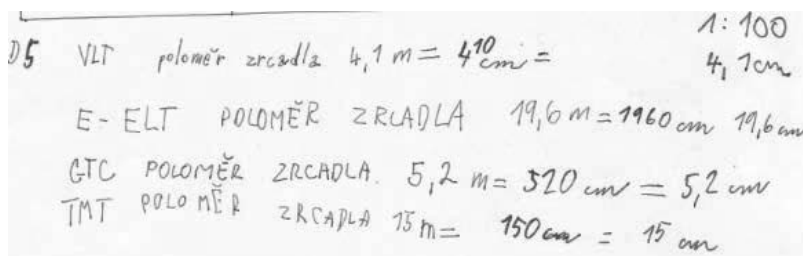 1:100
D5 VLT poloměr zrcadla 4,1 m = 410 cm = 4,1cm
E-ELT POLOMĚR ZRCADLA 19,6 m = 1960 cm 19,6 cm
GTC POLOMĚR ZRCADLA. 5,2 m = 520 cm = 5,2 cm
TMT POLOMĚR ZRCADLA 15 m = 150 cm = 15 cm